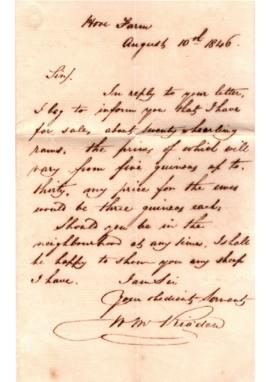 Hove Farm
August 10th 1846.
Sir/
In reply to your letter,
I beg to inform you that I have
for sale, about twenty shearling
rams. the prices of which will
vary from five guineas up to
thirty, any price for the ewes
would be three guineas each,
Should you be in the
neighbourhood at any time, I shall
be happy to show you any sheep
I have. I am Sir
Your obedient Servant
Wm